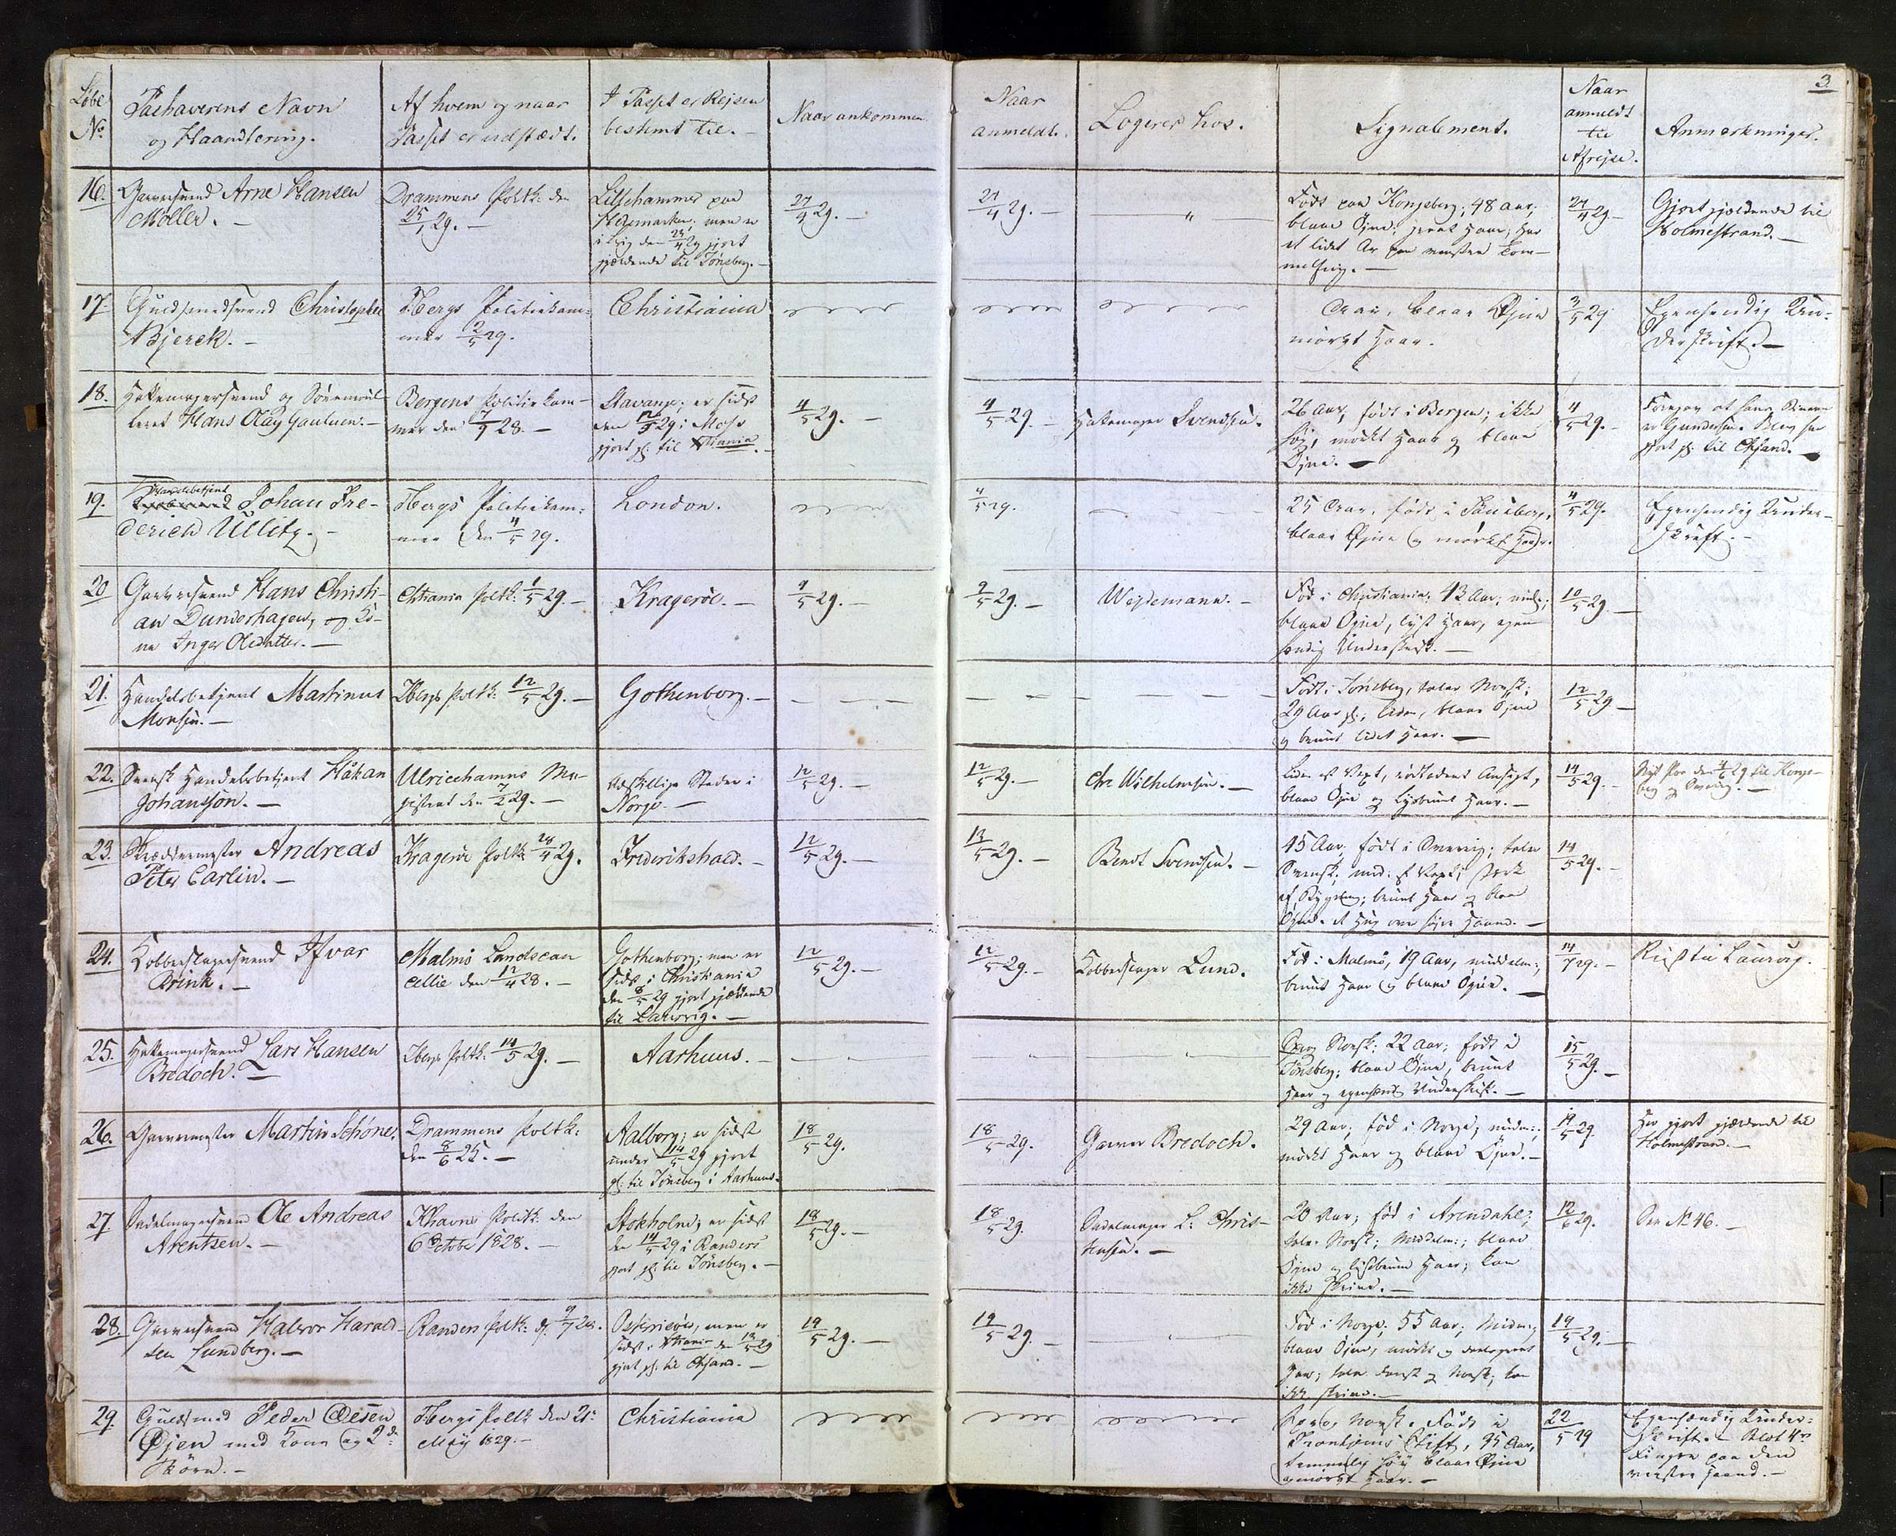 3.
Løbe No.
Pashaverens Navn
og Haandtering.
Af hvem og naar
Passet er udstædt.
I Passet er Rejsen
bestemt til.
Naar ankommen
Naar
anmeldt.
Logerer hos.
Signalement.
Naar
anmeldt
til
Afrejse.
Anmerkninger.
16.
Garversvend Arne Hansen
Møller.
Drammens Poltk. den
25/1 29.
Lillehammer paa
Hedemarken, men er
gjældende til Tønsberg.
27/4 29.
27/4 29.
"
Født paa Kongsberg, 48 Aar,
blaae Øjne,
et lidet Ar paa venstre
27/4 29
Gjort gjældende til
Holmestrand.
17.
Guldsmedsvend Christopher
Bjerck.
Tbergs Politiekam-
mer 2/5 29.
Christiania
blaae Øjne
mørkt Haar.
3/5 29
Egenhændig Un-
derskrift.
18.
Hattemagersvend og
Hans Olay Gaulsen.
Bergens Politiekam-
mer den 7/7 28.
Stavanger; er sidst
den 12/3 29 i Moss
gjort gl: til Xtiania.
4/5 29.
4/5 29.
Hattemager Svendsen.
26 Aar, født i Bergen; ikke
høj, mørkt Haar og blaae
Øjne.
4/5 29.
gjort gl: til Chsand.
19.
Handelsbetjent
Johan Fre-
derich Ullitz.
Tbergs Politiekam-
mer den 4/5 29.
London.
4/5 29.
25 Aar, født i Tønsberg,
blaae Øjne og mørkt Haar.
4/5 29.
Egenhændig Under-
skrift.
20
Garversvend Hans Christi-
an Dunderhagen, og Ko-
ne Inger Olsdatter.
Chtiania Poltk: 1/5 29.
Kragerøe.
9/5 29.
9/5 29.
Weidemann.
Fød i Christiania, 42 Aar,
blaae Øjne, lyst Haar, egen
hændig Underskrift.
10/5 29.
21.
Handelsbetjent Martinus
Monsen.
Tbergs Poltk: 12/5 29.
Gothenborg.
Født i Tønsberg, taler Norsk;
29 Aar gl:, liden, blaae Øjne
og bruunt lidet Haar.
12/5 29
22.
Svensk Handelsbetjent Håkan
Johansson.
Ulricehamns Ma-
gistrat den 7/2 29.
Adskillige Steder i
Norge.
12/5 29.
12/5 29.
Chr Wilhelmsen.
Liden af Vext, Ansigt,
blaae Øjne og lysbruunt Haar.
14/5 29.
23.
Skræddermester Andreas
Peter Carlin.
Kragerøe Poltk 28/4 29.
Frederikshald.
12/5 29.
13/5 29.
Bendt Svendsen.
45 Aar, født i Sverrig; taler
Svensk, midd: af Vext;
af Bygning; bruunt Haar og blaa
Øjne.
14/5 29.
24.
Kobberslagersvend Ifvar
Brink.
Malmö Landscan-
cellie den 12/4 28.
Gothenborg; men er
sidst i Christiania
den 8/5 29 gjort gjældende
til Laurvig.
12/5 29.
12/5 29.
Kobberslager Lund.
Fød i Malmø, 19 Aar, middelm:,
bruunt Haar og blaae Øjne.
14/7 29.
Rejst til Laurvig.
25.
Hattemagersvend Lars Hansen
Bredoch.
Tbergs Poltk: 14/5 29.
Aarhuus.
Norsk; 22 Aar; født i
Tønsberg; blaae Øjne, bruunt
Haar og egenhændig Underskrift.
15/5 29.
26.
Garvermester Martin Schöne.
Drammens Poltk:
den 8/6 25.
Aalborg; er sidst
under 14/5 29 gjort
gl: til Tønsberg i Aarhuus.
18/5 29.
18/5 29.
Garver Bredoch.
29 Aar, fød i Norge,
mørkt Haar og blaae Øjne.
19/5 29.
Her gjort gjældende til
Holmestrand.
27
Sadelmagersvend Ole Andreas
Arentsen.
Khavns Poltk: den
6 October 1828.
Stokholm; er sidst
den 14/5 29 i Randers
gjort gl: til Tønsberg.
18/5 29.
18/5 29.
Sadelmager L: Chris-
tensen.
20 Aar; fød i Arendahl;
taler Norsk; Middelm:; blaae
Øjne og lysebruunt Haar; kan
ikke skrive.
12/6 29.
See No 46.
28.
Garversvend Halvor Harald-
sen Lundberg.
Randers Poltk: d. 9/7 28.
Osterrisöer, men er
sidst i Xtiania den 13/5 29
gjort gl: til Chsand.
19/5 29.
19/5 29.
Fød i Norge, 55 Aar; Middm:,
blaae Øjne, mørkt og
Haar; taler dansk og Norsk; kan
ikke skrive.
19/5 29.
29.
Guldsmed Peder Olesen
Øjen med Kone og 2de
Börn.
Tbergs Poltk den 21:
May 1829.
Christiania
Norsk. Født i
Trondhiems Stift, 35 Aar,
temmelig høy blaae Øjne
og mørkt Haar.
22/5 29
Egenhændig Under-
skrift. Blot 4re
Fingre paa den
venstre Haand.